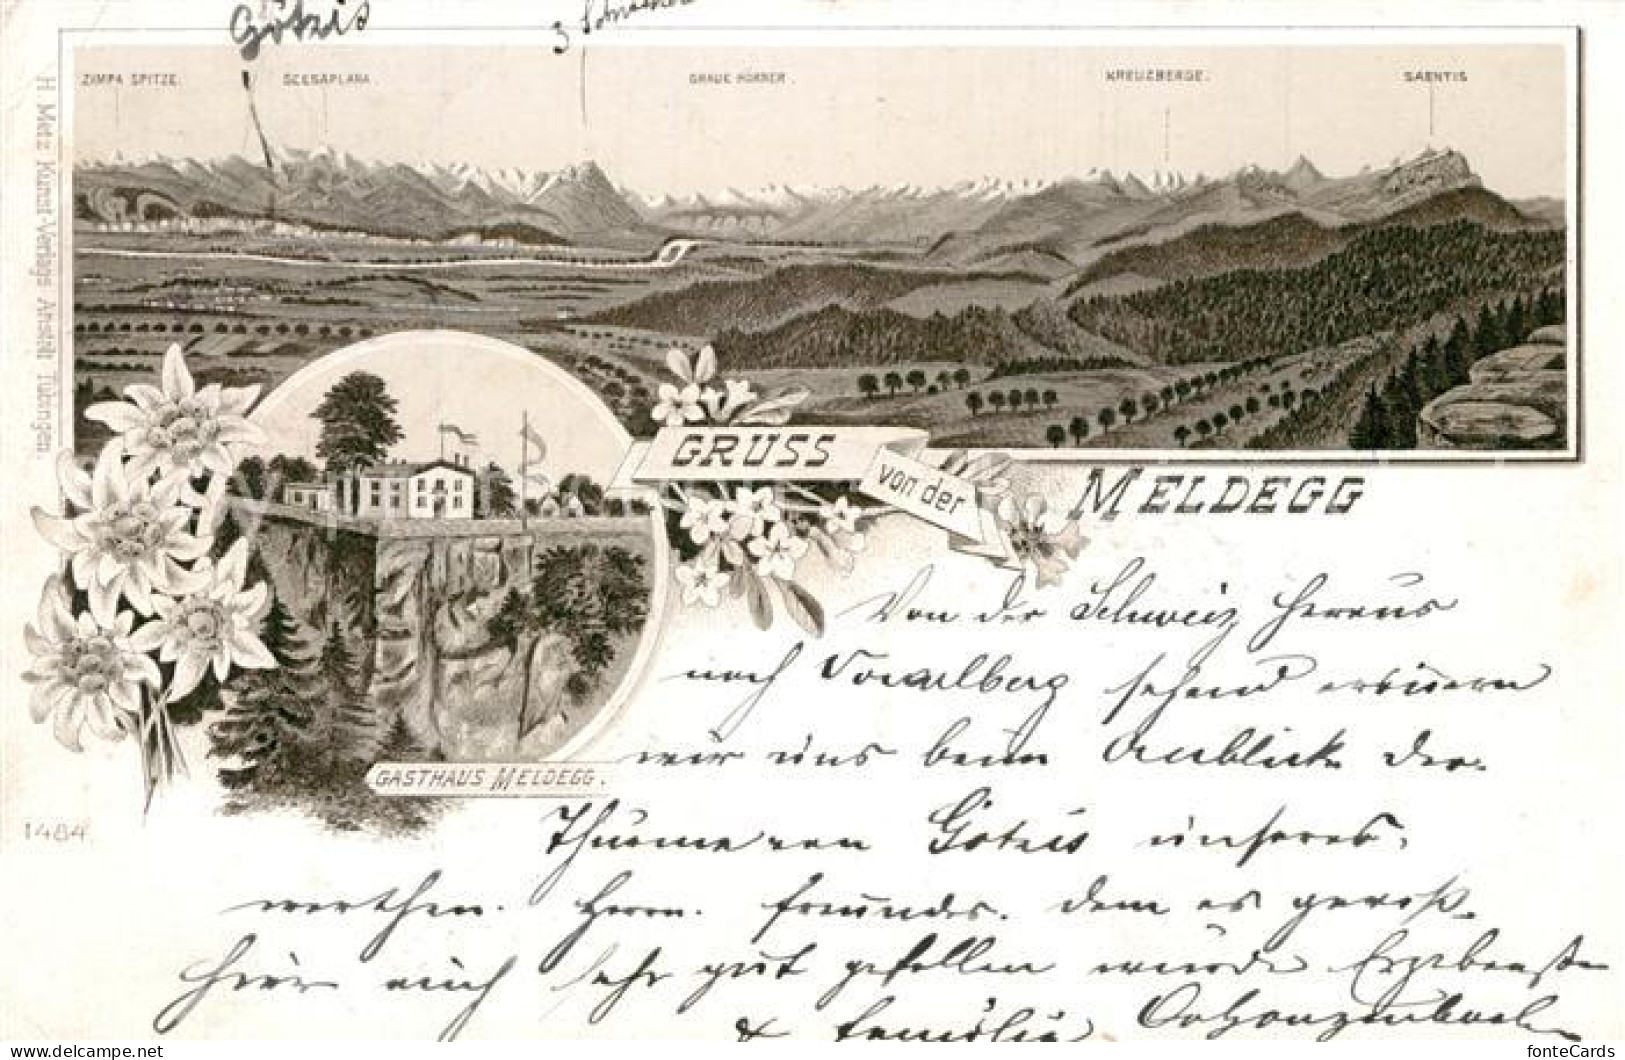 Götzis
3 Schwestern
ZIMPA SPITZE.
SCESAPLANA
GRAUE HÖRNER.
KREUZBERGE.
SAENTIS
H. Metz Kunst-Verlags Anstalt Tübingen.
GRUSS von der MELDEGG
GASTHAUS MELDEGG.
1484
Von der Schweiz heraus
nach Vorarlberg sehend erinern
wir uns beim Anblick der
Thürme von Götzis unseres
werthen Herrn Freundes, dem es gewiß
hier auch sehr gut gefallen würde Ergebenste
& Familie
fonteCards